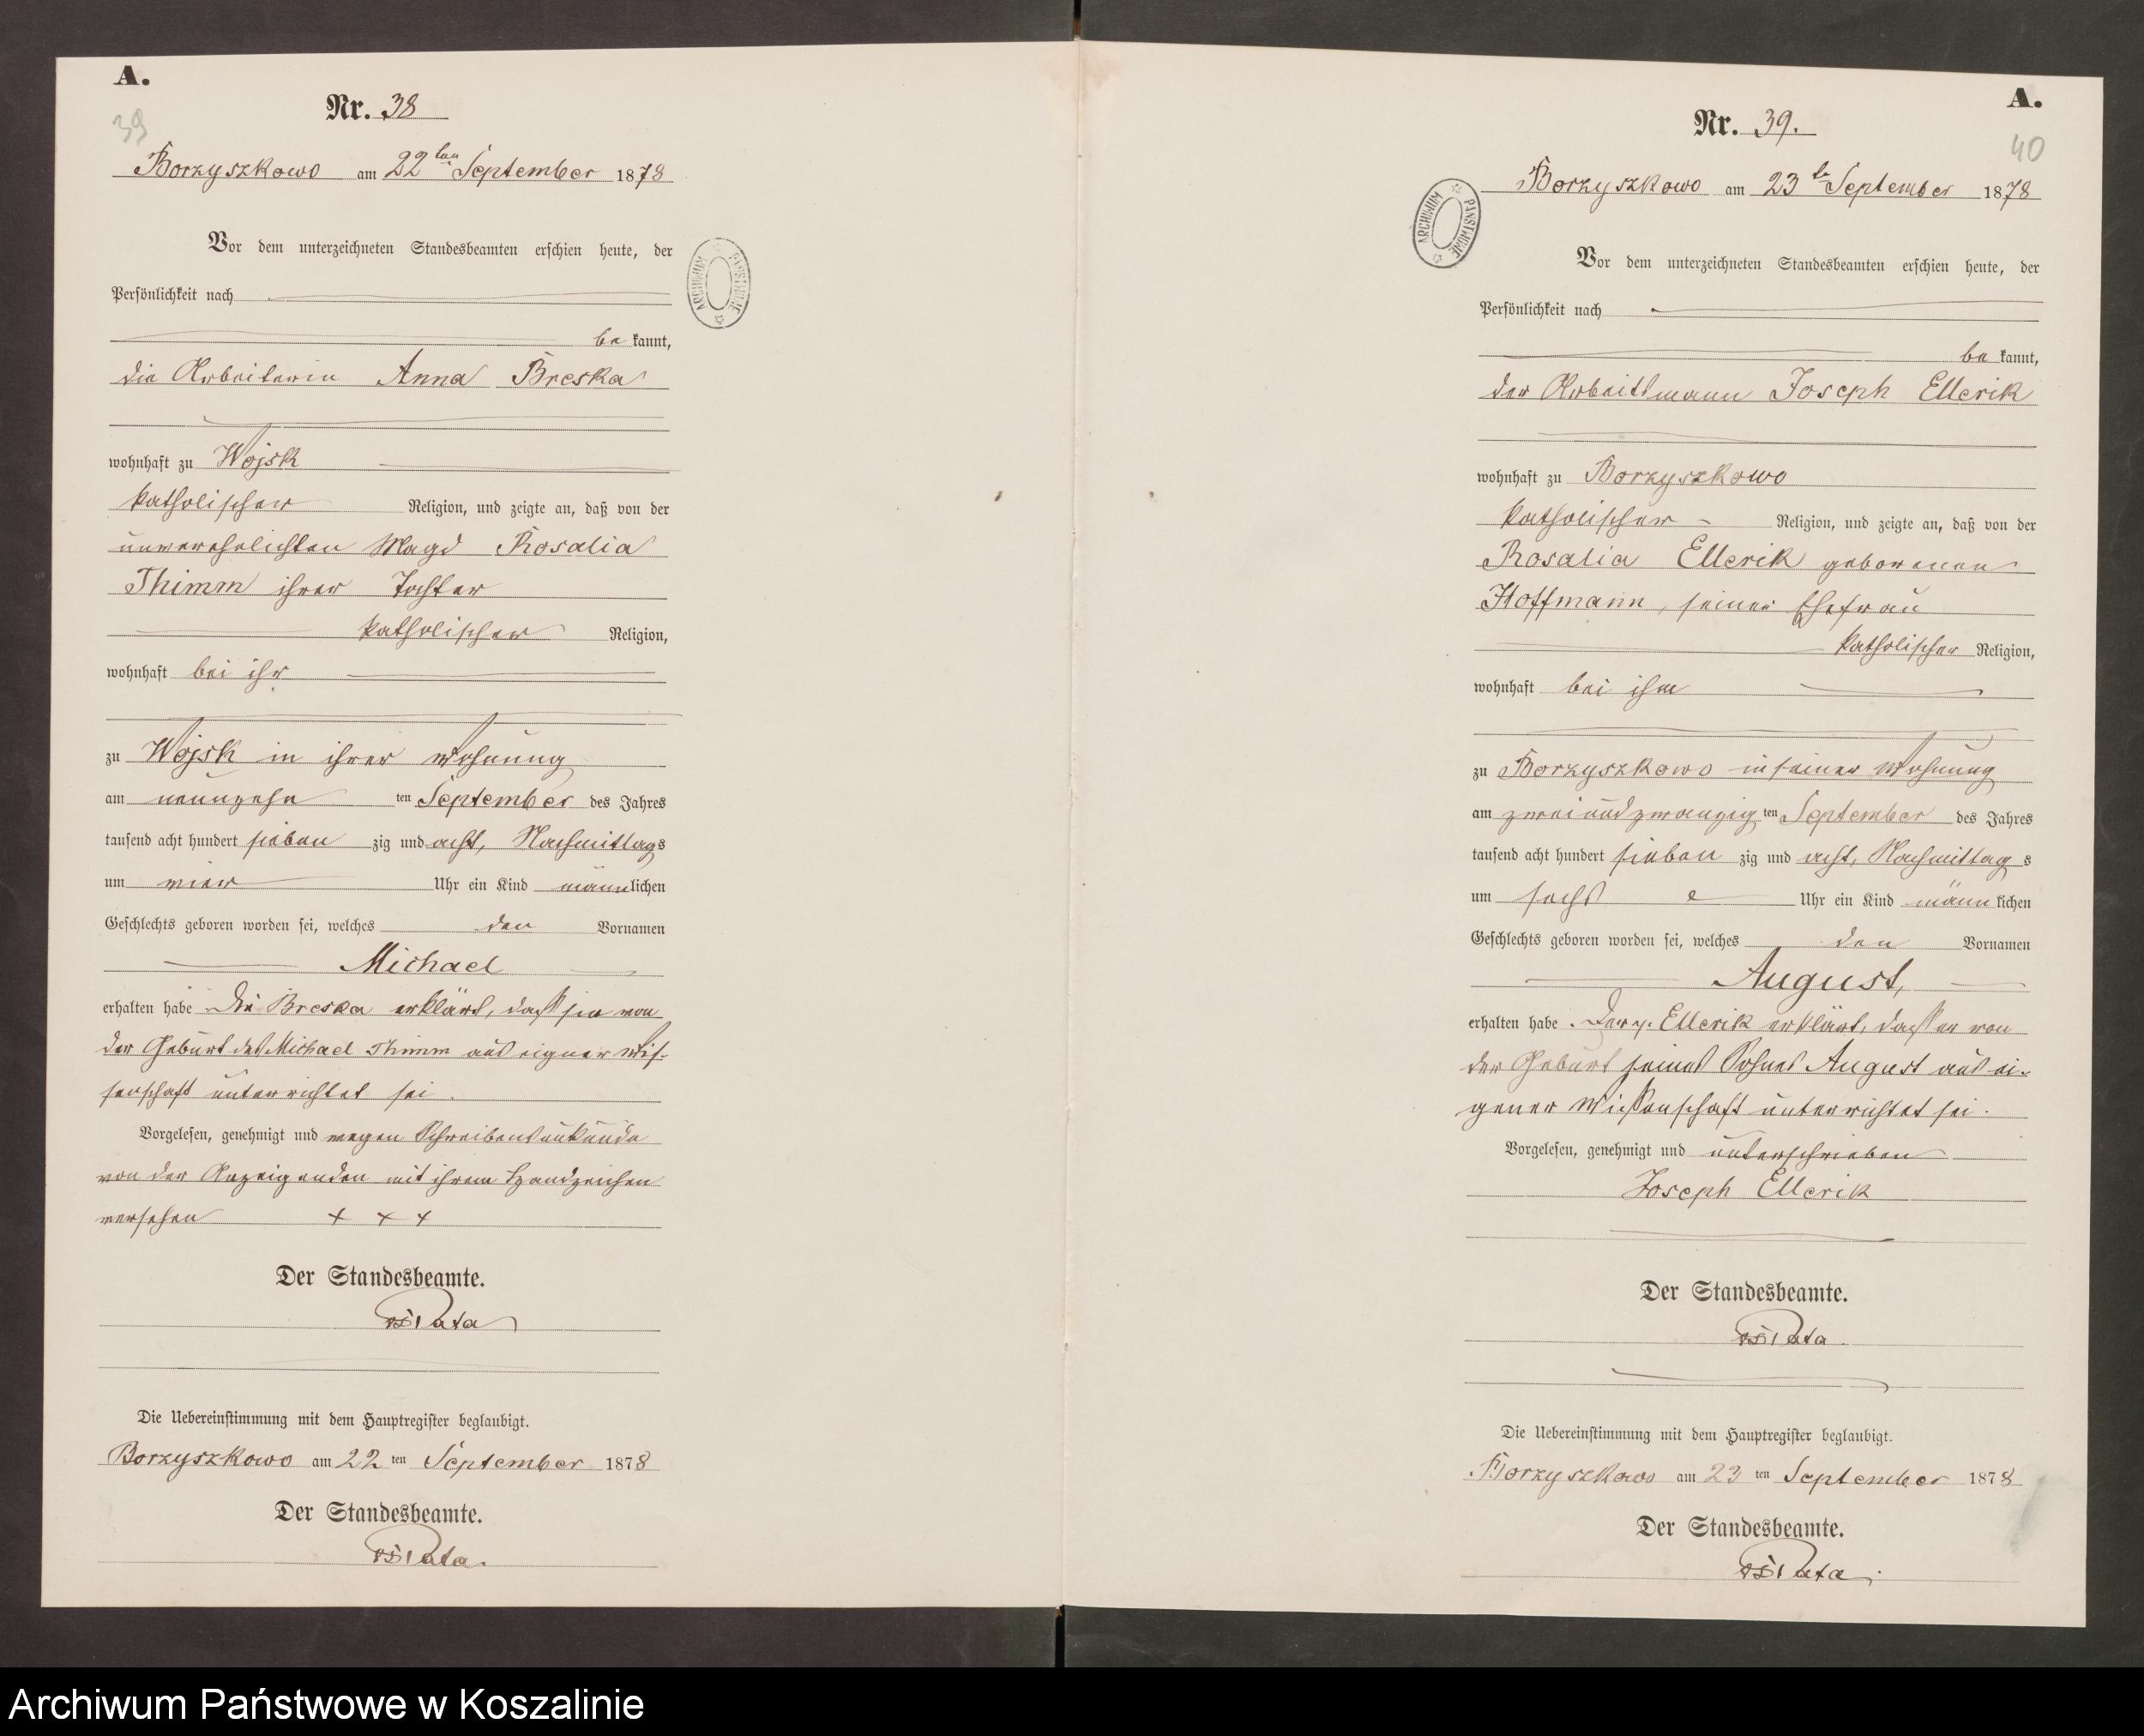 A.
39
Nr. 38
Borzyszkowo am 22ten September 1878
Vor dem unterzeichneten Standesbeamten erschien heute, der
Persönlichkeit nach
be kannt,
die Arbeiterin Anna Breska
wohnhaft zu Wojsk
katholischer Religion, und zeigte an, daß von der
unverehelichten Magd Rosalia
Thimm ihrer Tochter
katholischer Religion,
wohnhaft bei ihr
zu Wojsk in ihrer Wohnung
am neunzehn ten September des Jahres
tausend acht hundert sieben zig und acht, Nachmittags
um vier Uhr ein Kind männlichen
Geschlechts geboren worden sei, welches den Vornamen
Michael
erhalten habe Die Breska erklärt, daß sie von
der Geburt des Michael Thimm aus eigner Wis-
senschaft unterrichtet sei.
Vorgelesen, genehmigt und wegen Schreibensunkunde
von der Anzeigenden mit ihrem Handzeichen
versehen + + +
Der Standesbeamte.
Die Uebereinstimmung mit dem Hauptregister beglaubigt.
Borzyszkowo am 22 ten September 1878
Der Standesbeamte.
A.
40
Nr. 39.
Borzyszkowo am 23 September 1878
ARCHIWUM PAŃSTWOWE
Vor dem unterzeichneten Standesbeamten erschien heute, der
Persönlichkeit nach
be kannt,
der Arbeitsmann Joseph Ellerik
wohnhaft zu Borzyszkowo
katholischer Religion, und zeigte an, daß von der
Rosalia Ellerik geborenen
Hoffmann, seiner Ehefrau
katholischer Religion,
wohnhaft bei ihm
zu Borzyszkowo in seiner Wohnung
am zweiundzwanzig ten September des Jahres
tausend acht hundert sieben zig und acht, Nachmittag s
um sechs Uhr ein Kind männ lichen
Geschlechts geboren worden sei, welches den Vornamen
August,
erhalten habe. Der p. Ellerik erklärt, daß er von
der Geburt seines Sohnes August aus ei-
gener Wissenschaft unterrichtet sei.
Vorgelesen, genehmigt und unterschrieben
Joseph Ellerik
Der Standesbeamte.
Die Uebereinstimmung mit dem Hauptregister beglaubigt.
Borzyszkowo am 23 ten September 1878
Der Standesbeamte.
Archiwum Państwowe w Koszalinie